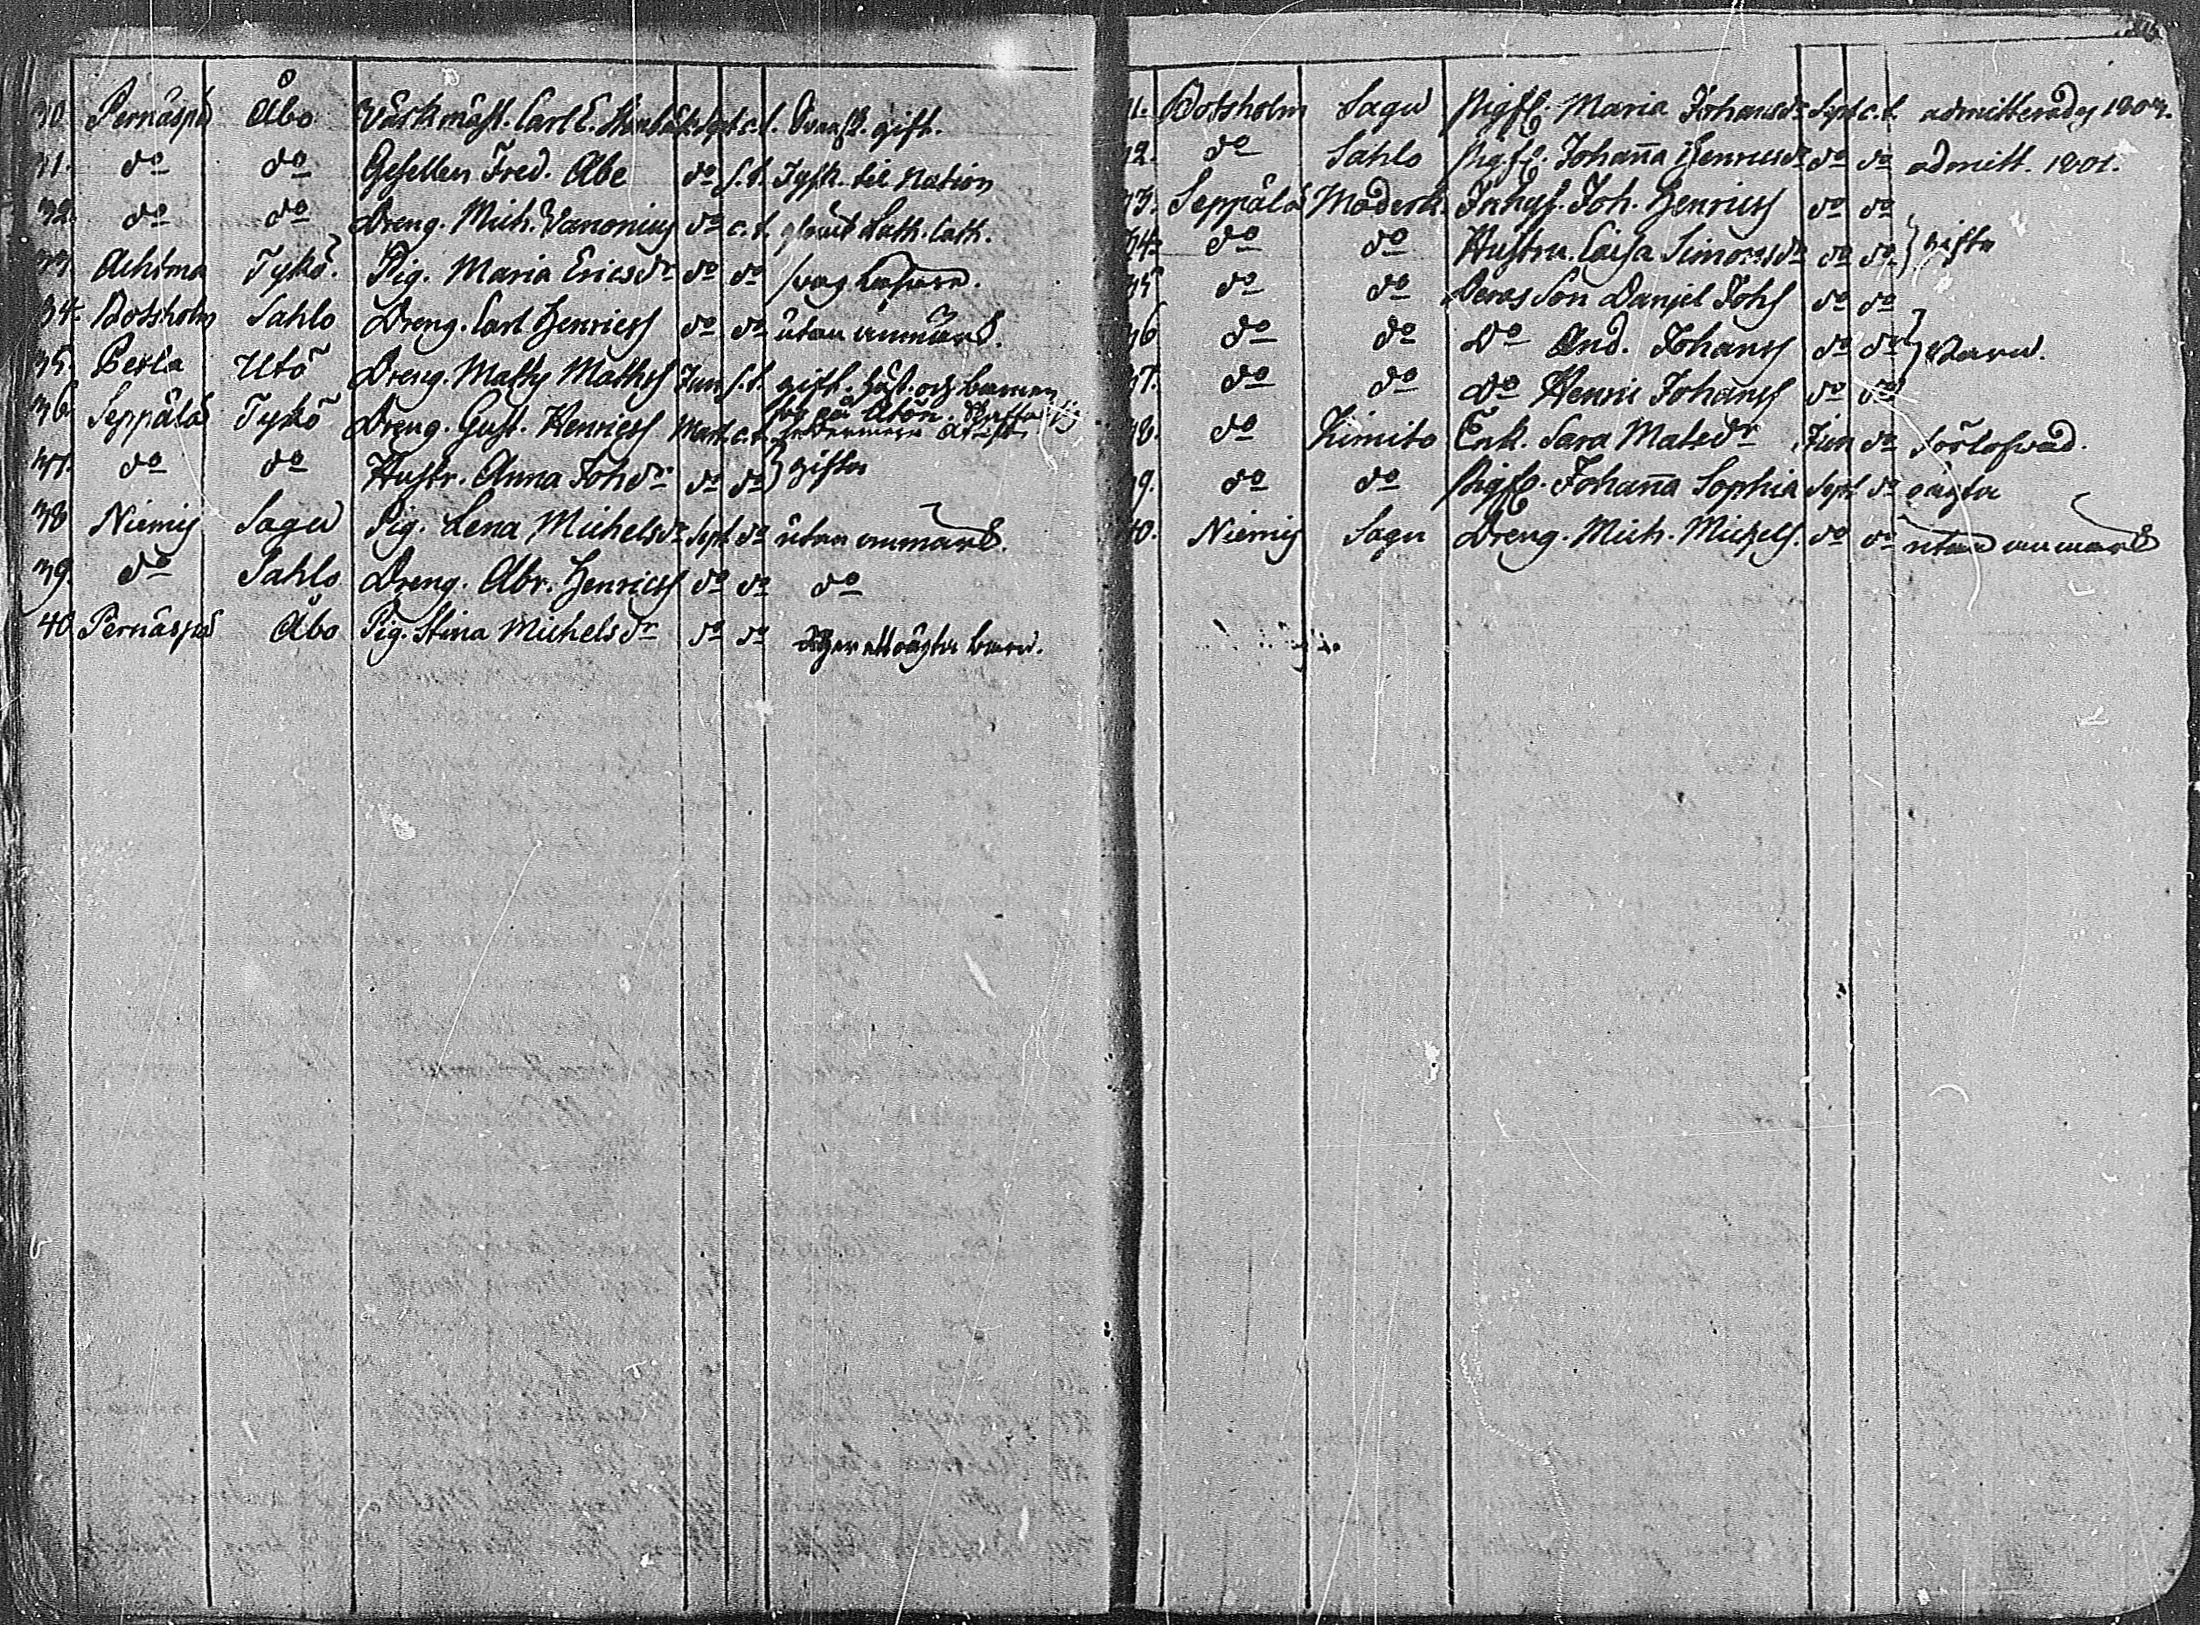 30. Pernäspä Åbo Värkmäst. Carl E. Sept. c. f. Svensk. gift.
31. do do Gesellen Fred. Abe do s. f. Tysk. til Nation
32. do do Dreng. Mich. Vanonius do c. f. Cath.
33. Achima Tykö. Pig. Maria Ericsdr do do svag
34. Botsholm Sahlo Dreng. Carl Henricss do do utan anmärk.
35. Perla Utö Dreng. Matts Mattss Jun. s. f. gift. Hust. och barnen
för på Utön.
36. Seppälä Tykö Dreng. Gust. Henricss Mart. c. f.
37. do do Hustr. Anna Johdr do do } gifta
38 Niemis Sagu Pig. Lena Michelsdr Sept. do utan anmärk.
39. do Sahlo Dreng. Abr. Henricss do do do
40. Pernäspä Åbo Pig. Stina Michelsdr do do äger ett oägta barn.
31. Botsholm Sagu Pigfl. Maria Johansdr Sept. c. f.
32. do Sahlo Pigfl. Johanna Henricsdr do do admitt. 1801.
33. Seppälä Moderk. Inhys. Joh. Henricss do do
34. do do Hustru. Caisa Simonsdr do do } gifta
35 do do Deras Son Daniel Johs do do
36 do do do And. Johanss do do } Barn.
37. do do do Henric Johanss do do
38. do Kimito Enk. Sara Matsdr Jun do förlofwad.
39. do do Pigfl. Johanna Sophia Sept do oägta
40. Niemis Sagu Dreng. Mich. Michels. do do utan anmärk